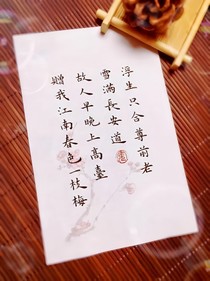 浮生只合尊前老
雪滿長安道
故人早晚上高臺
贈我江南春色一枝梅